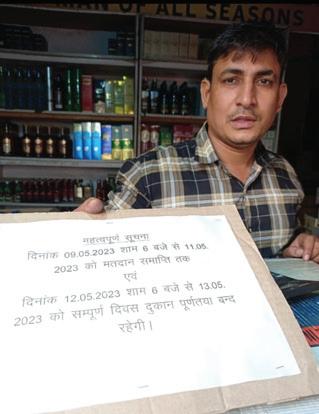 MAN OF ALL SEASONS
महत्वपूर्ण सूचना
दिनांक 09.05.2023 शाम 6 बजे से 11.05.
2023 को मतदान समाप्ति तक
एवं
दिनांक 12.05.2023 शाम 6 बजे से 13.05.
2023 को सम्पूर्ण दिवस दुकान पूर्णतया बन्द
रहेगी।